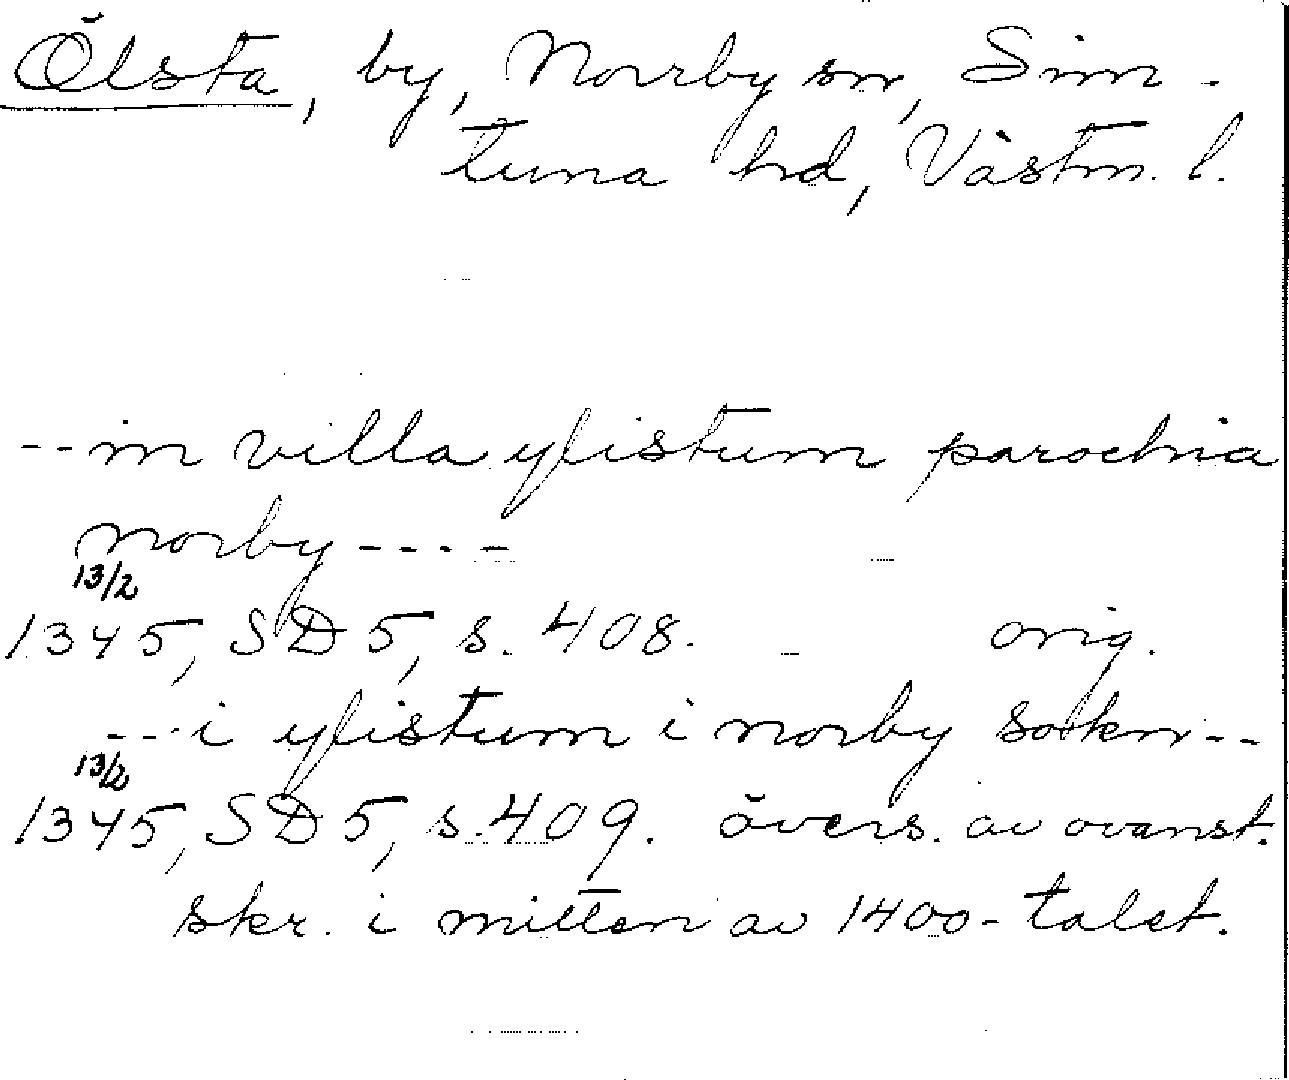 Ölsta, by, Norrby sn, Sim-
tuna hd, Västm. l.
--in villa yfistum parochia
norby----
13/2
1345, SD 5, s. 408. orig.
---i yfistum i norby sokn--
13/2
1345, SD 5, s. 409. övers. av ovanst.
skr. i mitten av 1400-talet.